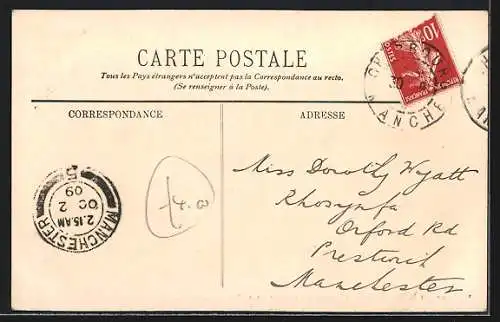 CARTE POSTALE
Tous les Pays étrangers n'acceptent pas la Correspondance au recto.
(Se renseigner à la Poste).
CORRESPONDANCE
ADRESSE
10c
MANCHE
MANCHESTER
2.15.AM
OC 2
09
5
Miss Dorothy Wyatt
Orford Rd
Prestwich
Manchester